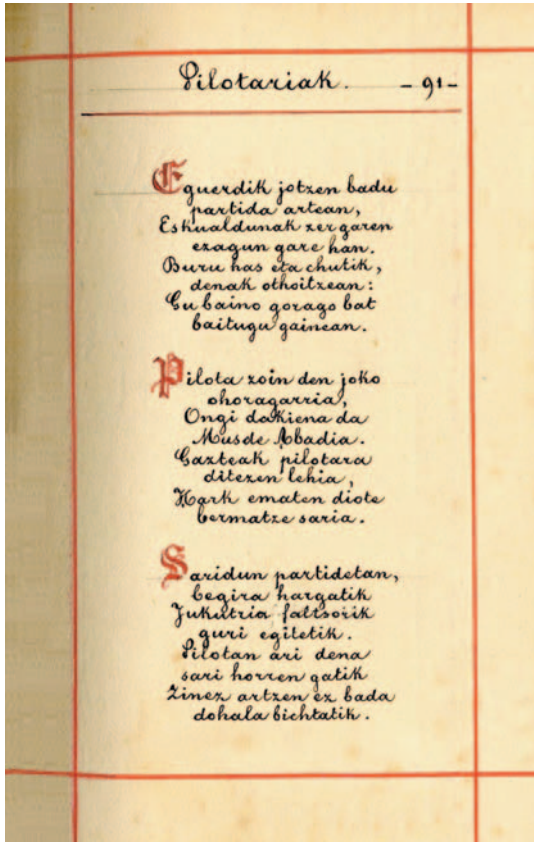 Pilotariak. - 91 -
Eguerdik jotzen badu
partida artean,
Eskualdunak zer garen
ezagun gare han.
Buru has eta chutik,
denak othoitzean:
Gu baino gorago bat
baitugu gainean.
Pilota zoin den joko
ohoragarria,
Ongi dakiena da
Musde Abadia.
Gazteak pilotara
ditezen lehia,
Hark ematen diote
bermatze saria.
Saridun partidetan,
begira hargatik
Jukutria faltsorik
guri egitetik.
Pilotan ari dena
sari horren gatik
Zinez artzen ez bada
dohala bichtatik.